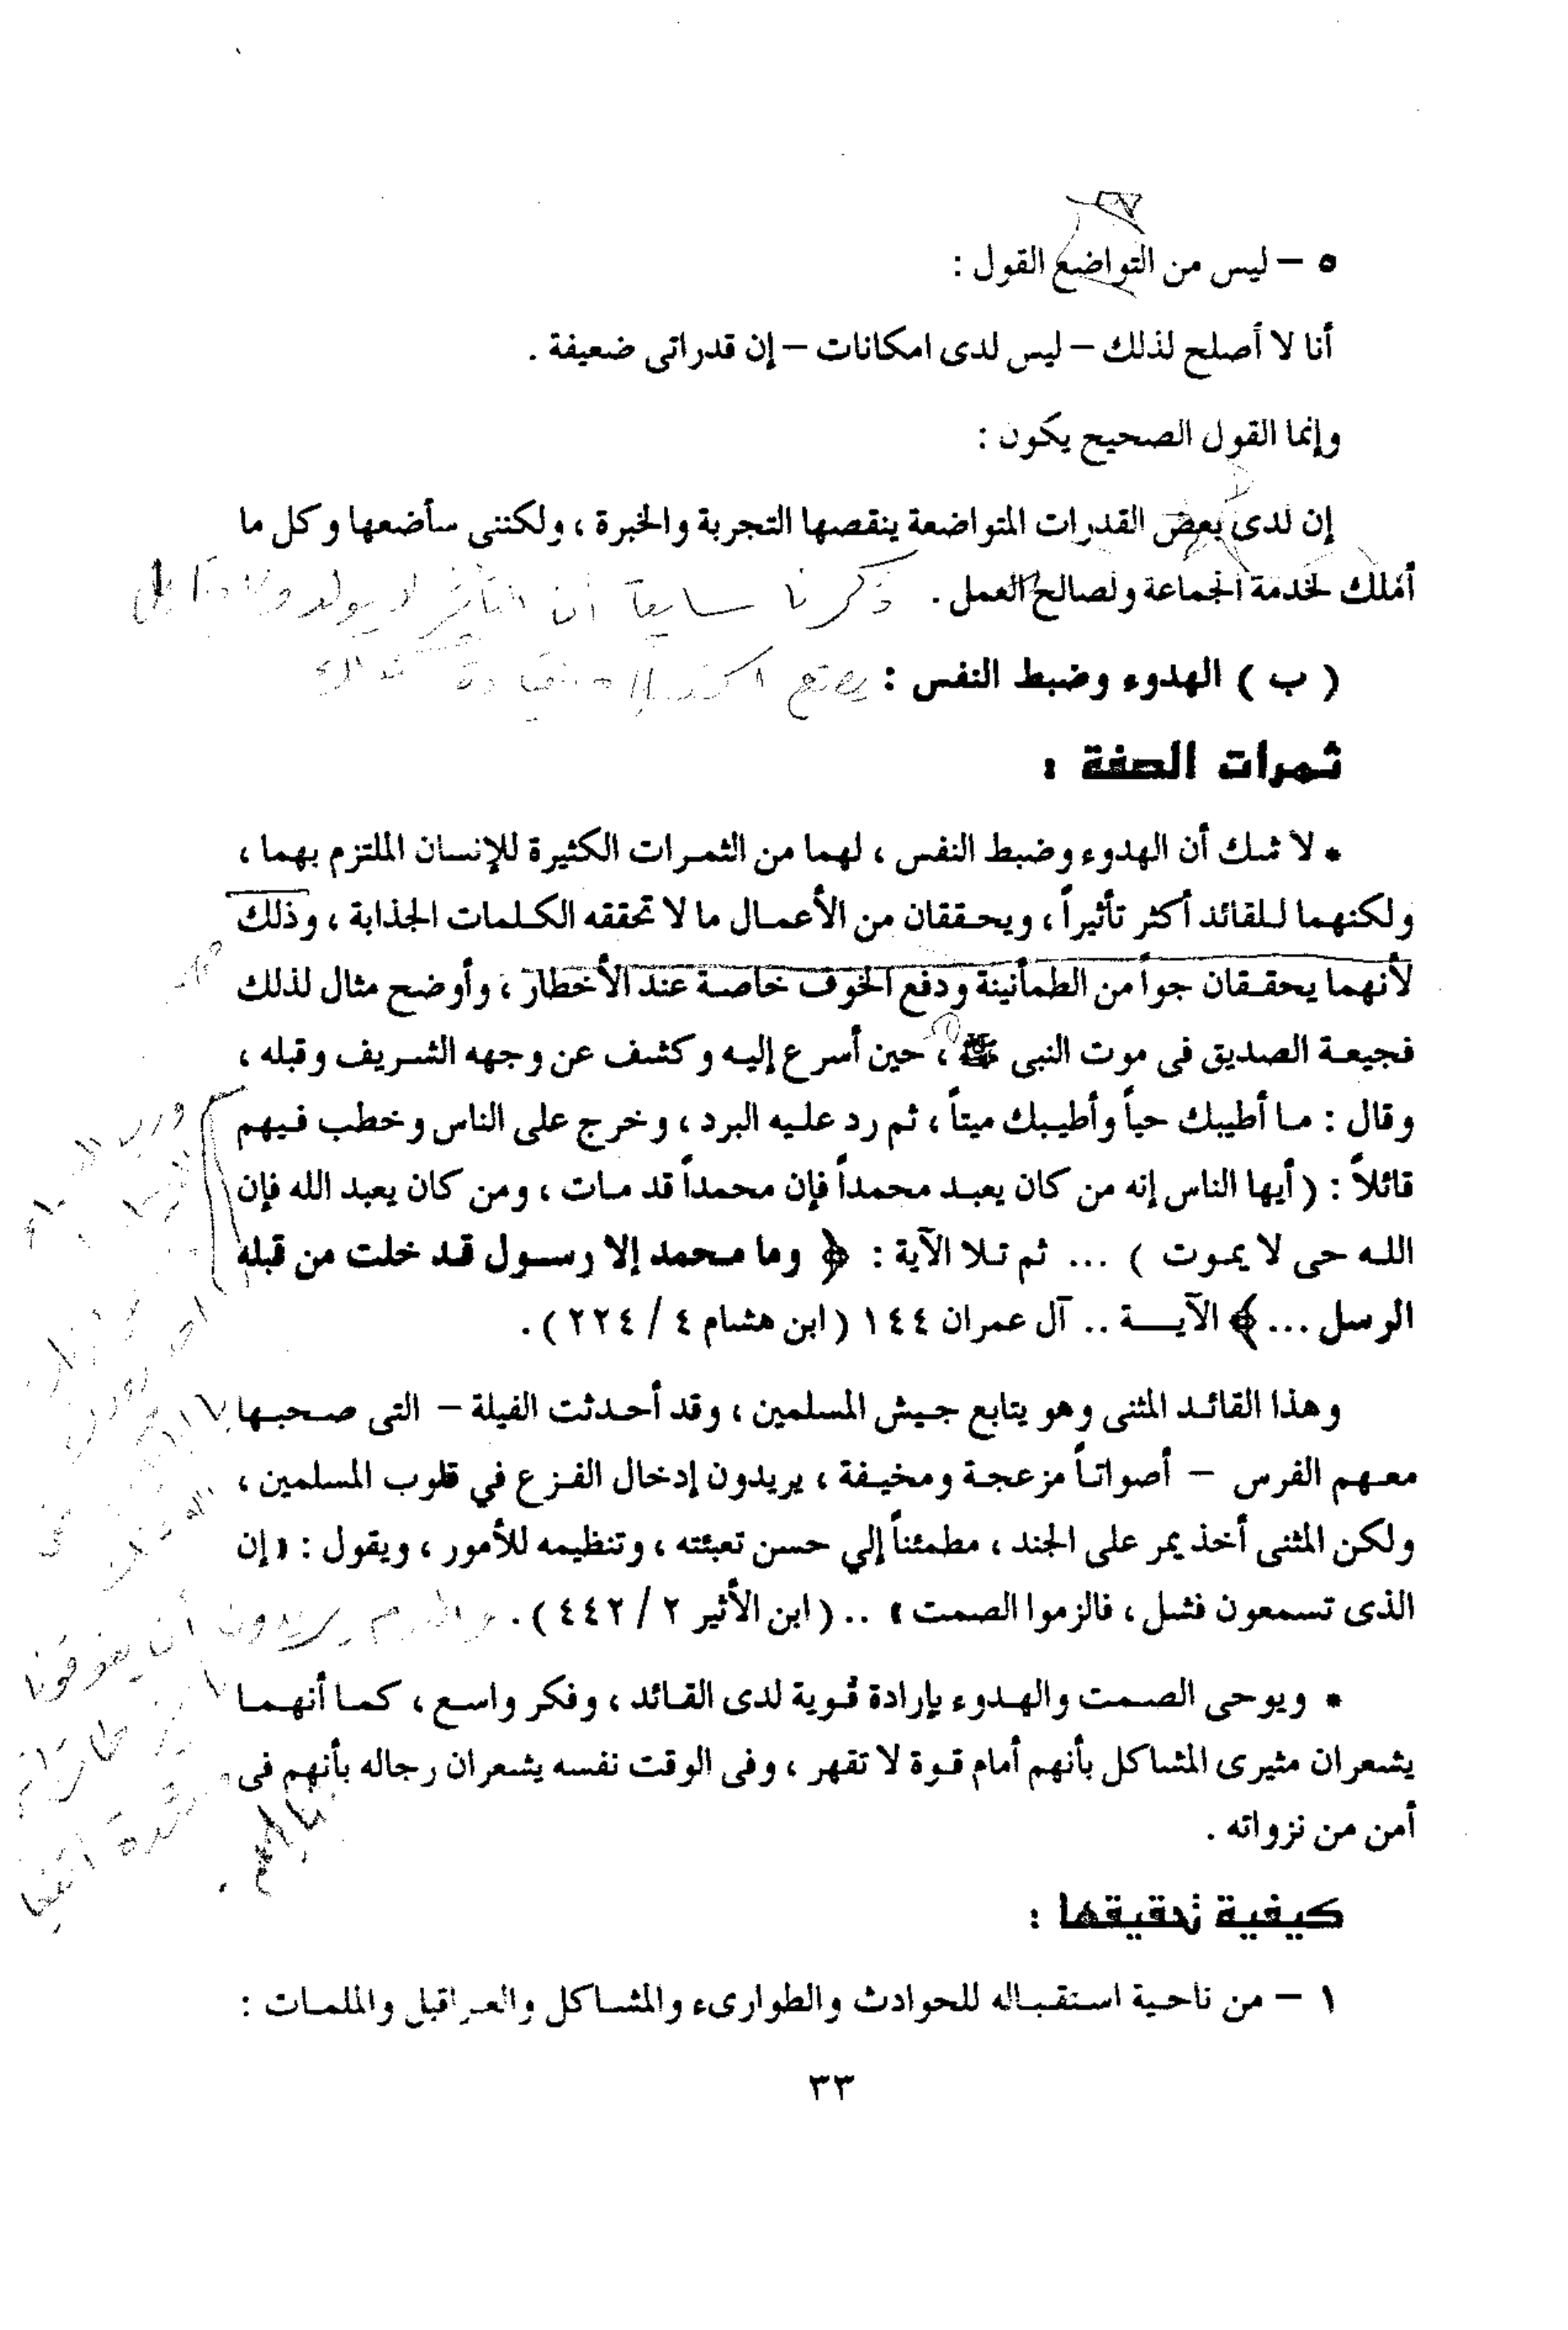 ٥ – ليس من التواضع القول :
أنا لا أصلح لذلك – ليس لدى امكانات – إن قدراتى ضعيفة .
وإنما القول الصحيح يكون :
إن لدى بعض القدرات المتواضعة ينقصها التجربة والخبرة ، ولكننى سأضعها وكل ما
أملك لخدمة الجماعة ولصالح العمل . ذكرنا سابقاً أن لا يولد
( ب ) الهدوء وضبط النفس :
ثمرات الصفة :
* لا شك أن الهدوء وضبط النفس ، لهما من الثمرات الكثيرة للإنسان الملتزم بهما ،
ولكنهما للقائد أكثر تأثيراً ، ويحققان من الأعمال ما لا تحققه الكلمات الجذابة ، وذلك
لأنهما يحققان جواً من الطمأنينة ودفع الخوف خاصة عند الأخطار ، وأوضح مثال لذلك
فجيعة الصديق فى موت النبى ﷺ ، حين أسرع إليه وكشف عن وجهه الشريف وقبله ،
وقال : ما أطيبك حياً وأطيبك ميتاً ، ثم رد عليه البرد ، وخرج على الناس وخطب فيهم
قائلاً : ( أيها الناس إنه من كان يعبد محمداً فإن محمداً قد مات ، ومن كان يعبد الله فإن
الله حى لا يموت ) ... ثم تلا الآية : ﴿ وما محمد إلا رسول قد خلت من قبله
الرسل ... ﴾ الآية .. آل عمران ١٤٤ ( ابن هشام ٤ / ٢٢٤ ) .
وهذا القائد المثنى وهو يتابع جيش المسلمين ، وقد أحدثت الفيلة – التى صحبها
معهم الفرس – أصواتاً مزعجة ومخيفة ، يريدون إدخال الفزع في قلوب المسلمين ،
ولكن المثنى أخذ يمر على الجند ، مطمئناً إلي حسن تعبئته ، وتنظيمه للأمور ، ويقول : « إن
الذى تسمعون فشل ، فالزموا الصمت » .. ( ابن الأثير ٢ / ٤٤٢ ) . يريدون أن
* ويوحى الصمت والهدوء بإرادة قوية لدى القائد ، وفكر واسع ، كما أنهما
يشعران مثيرى المشاكل بأنهم أمام قوة لا تقهر ، وفى الوقت نفسه يشعران رجاله بأنهم فى
أمن من نزواته .
كيفية تحقيقها :
١ – من ناحية استقباله للحوادث والطوارىء والمشاكل والعراقيل والملمات :
٣٣